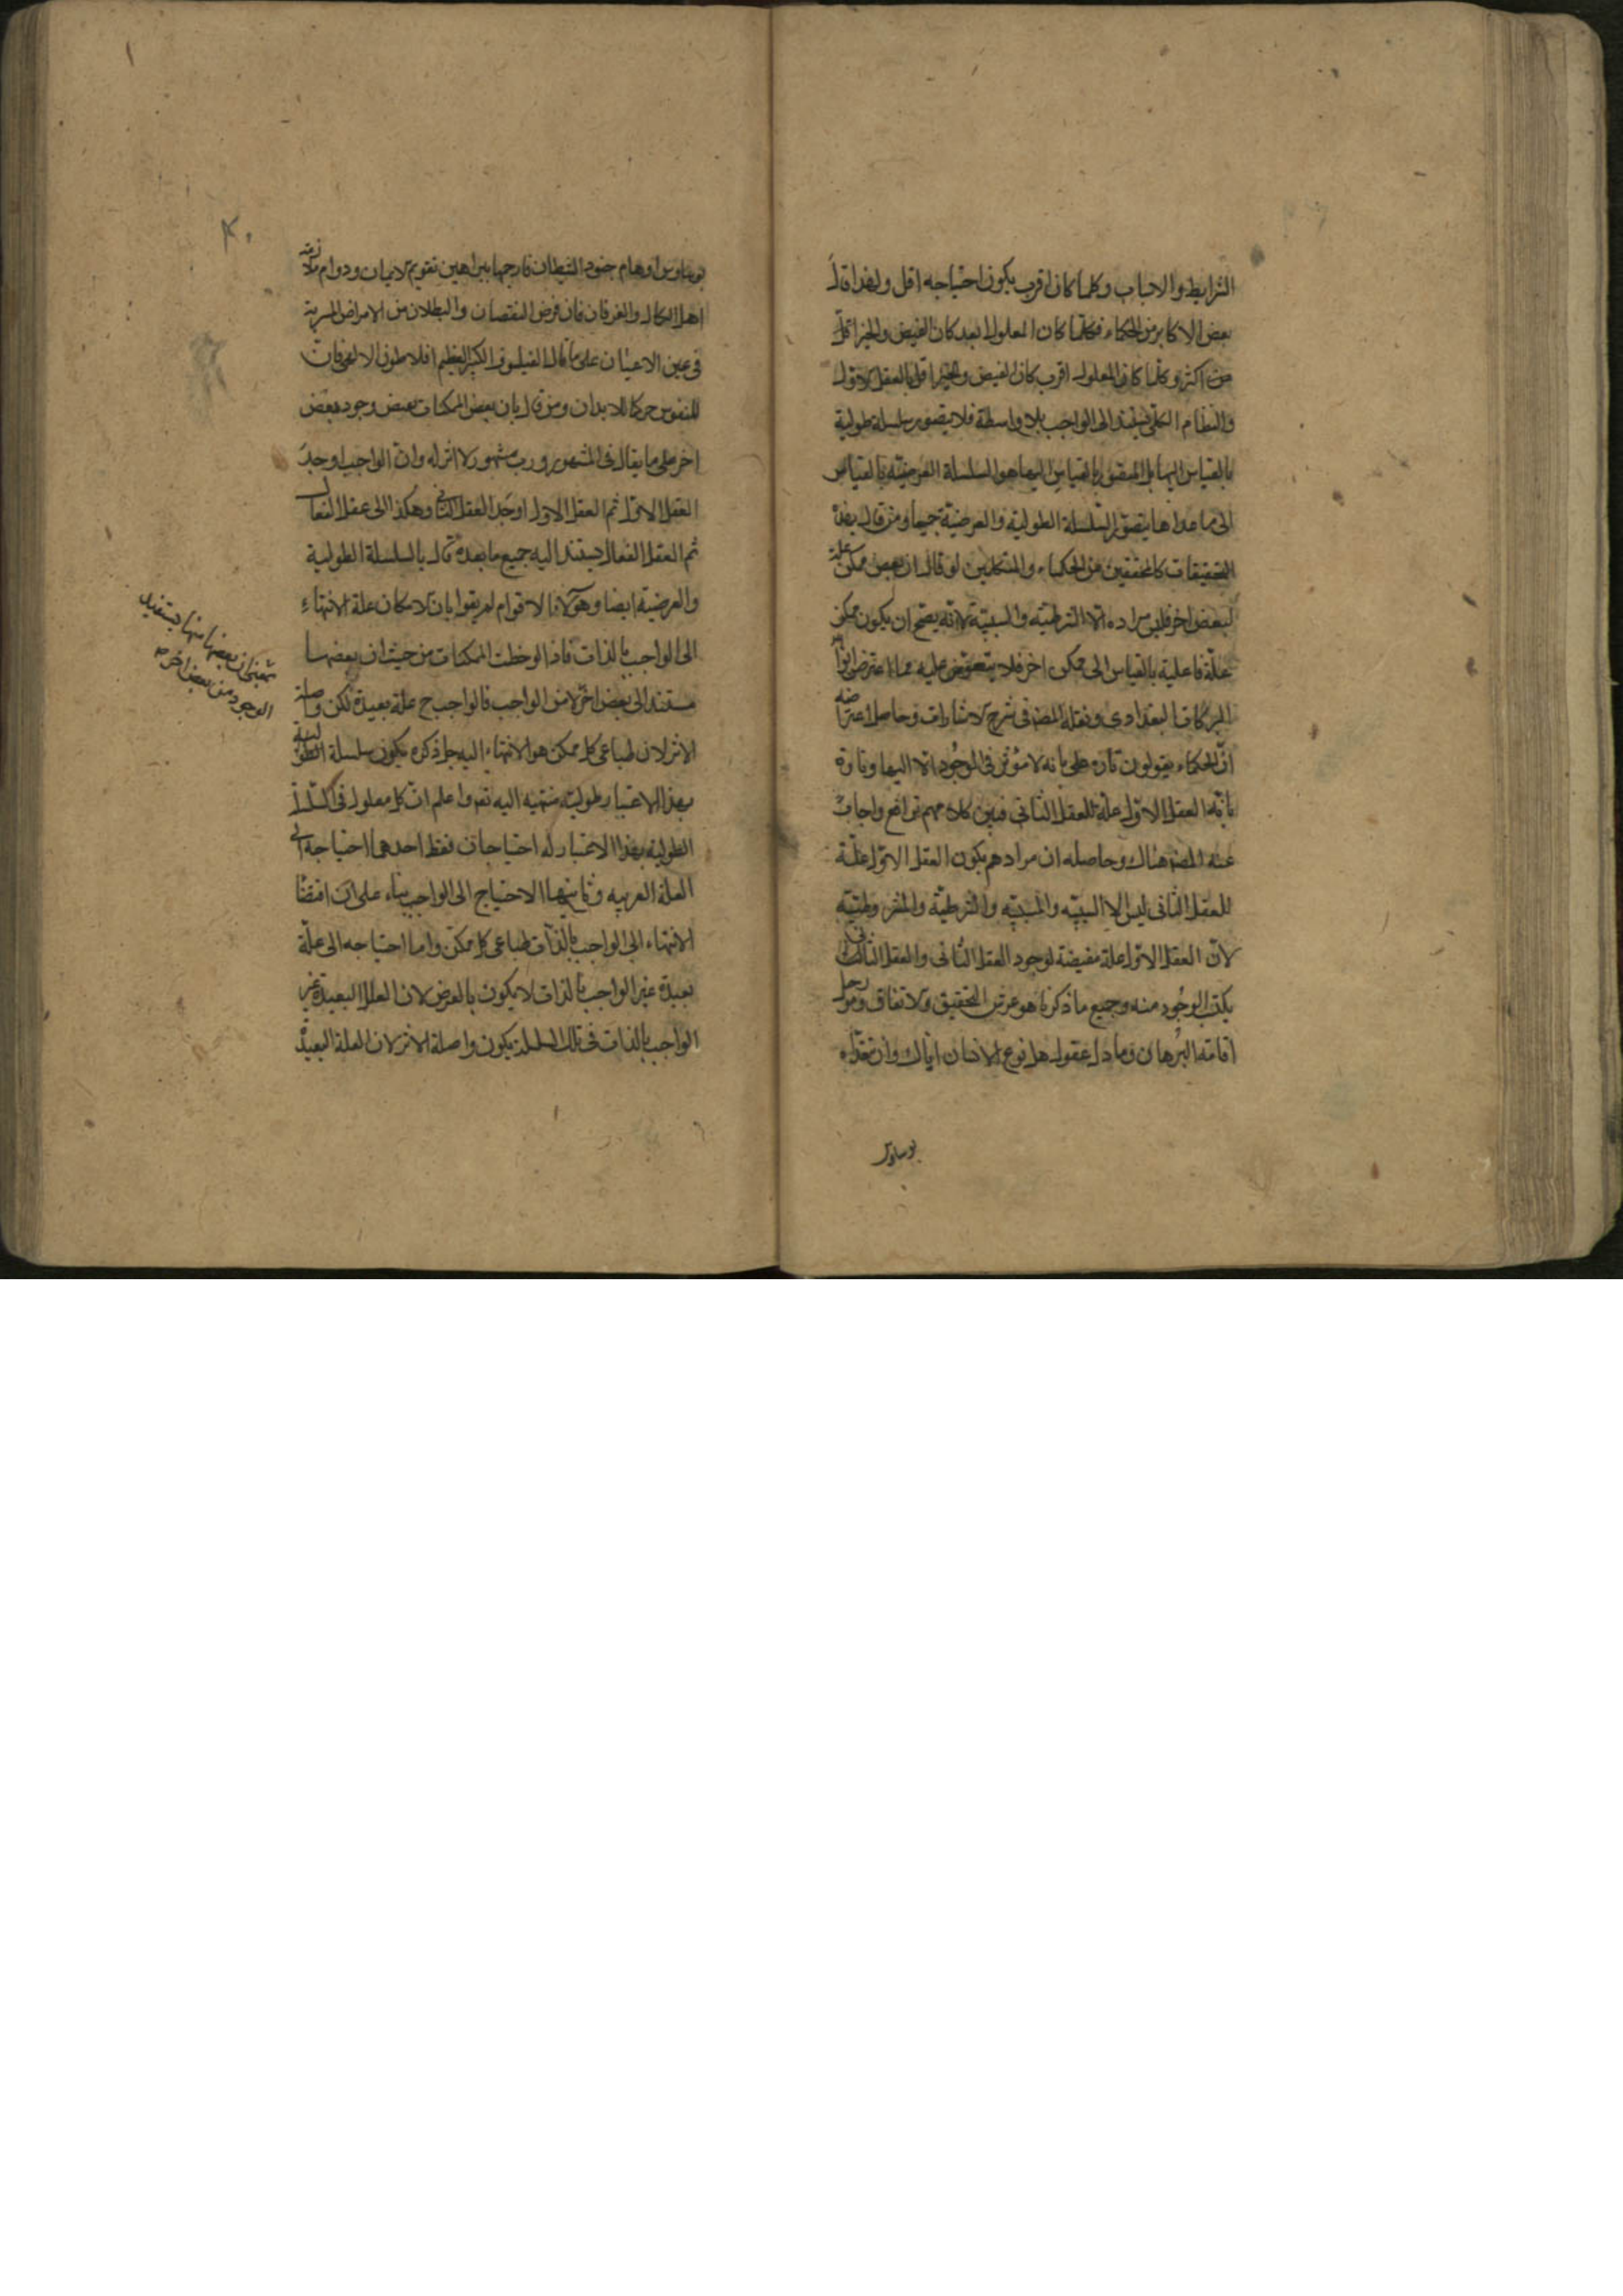 الشرايط والاسباب وكلما كان اقرب يكون احتياجه اقل ولهذا قال
بعض الاكابر من الحكماء فكلما كان المعلول ابعد كان الفيض والخير اقل
من اكثر وكلما كان المعلول اقرب كان الفيض والخير اقل بالعقل الاول
والنظام الكلي يستند الى الواجب بلا واسطة فلا يتصور سلسلة طولية
بالقياس اليهما بل المتصور بالقياس اليهما هو السلسلة العرضية بالقياس
الى ما عداها يتصور السلسلة الطولية والعرضية جميعا ومن قال بهذه
التحقيقات كالمحققين من الحكماء والمتكلمين لو قال ان بعض ممكن علة
لبعض اخر فليس مراده الا الشرطية والسببية لانه يصح ان يكون ممكن
علة فاعلية بالقياس الى ممكن اخر فلا يتعوض عليه مما اعترض ابو
البركات البغدادي ونقله المصـ في شرح الاشارات وحاصل اعتراضه
ان الحكماء يقولون تارة على بانه لا مؤثر في الوجود الا اليها وتارة
بانه العقل الاول علة للعقل الثاني فبين كلامهم تدافع واجاب
عنه المصـ هناك وحاصله ان مرادهم بكون العقل الاول علة
للعقل الثاني ليس الا السببية والمسببية والشرطية والمشروطية
لان العقل الاول علة مفيضة لوجود العقل الثاني والعقل الثاني
يكتب الوجود منه وجميع ما ذكرنا هو عرش التحقيق والاتفاق ومؤ
اقامة البرهان وما دل عقول هل نوع الانسان اياك وان تغذاه
بوساوس
٤٠
بوساوس اوهام جنود الشيطان فارجها ببراهين تقويم الايمان ودوام ملازمة
اهل الكمال والعرفان فان فرض النقصان والبطلان من الامراض المسرية
في عين الاعيان على ما قال الفيلسوف الكبير العظيم افلاطون الالهي فان
للنفوس حركا للابدان ومن قال بان بعض الممكنات بعض وجود بعض
اخر على ما يقال في المشهور ورب مشهور لا اثر له وان الواجب اوجد
العقل الاول ثم العقل الاول اوجد العقل الثاني وهكذا الى عقل الفعال
ثم العقل الفعال يستند اليه جميع ما بعده قال بالسلسلة الطولية
والعرضية ايضا وهؤلاء الاقوام لم يقوا بان الامكان علة الانتهاء
الى الواجب بالذات فاذا لوخطت الممكنات من حيث ان بعضها
مستند الى بعض اخر لا من الواجب فالواجب ح علة بعيدة لكن واصلة
الاثر لان طباعي كل ممكن هو الانتهاء اليه جل ذكره يكون سلسلة الطولية
بهذا الاعتبار طولية منتهية اليه نعم واعلم ان كل معلول في السلسلة
الطولية بهذا الاعتبار له احتياجان فقط احدهما احتياجه الى
العلة القريبه وثانيهما الاحتياج الى الواجب بناء على ان اقتضا
الانتهاء الى الواجب بالذات طباعي كل ممكن واما احتياجه الى علة
بعيدة غير الواجب بالذات لا يكون بالعرض لان العلل البعيدة غير
الواجب بالذات في تلك السلسلة يكون واصلة الاثر لان العلة البعيدة
بمعنى ان بعضها منها يستفيد
الوجود من بعض اخر منه